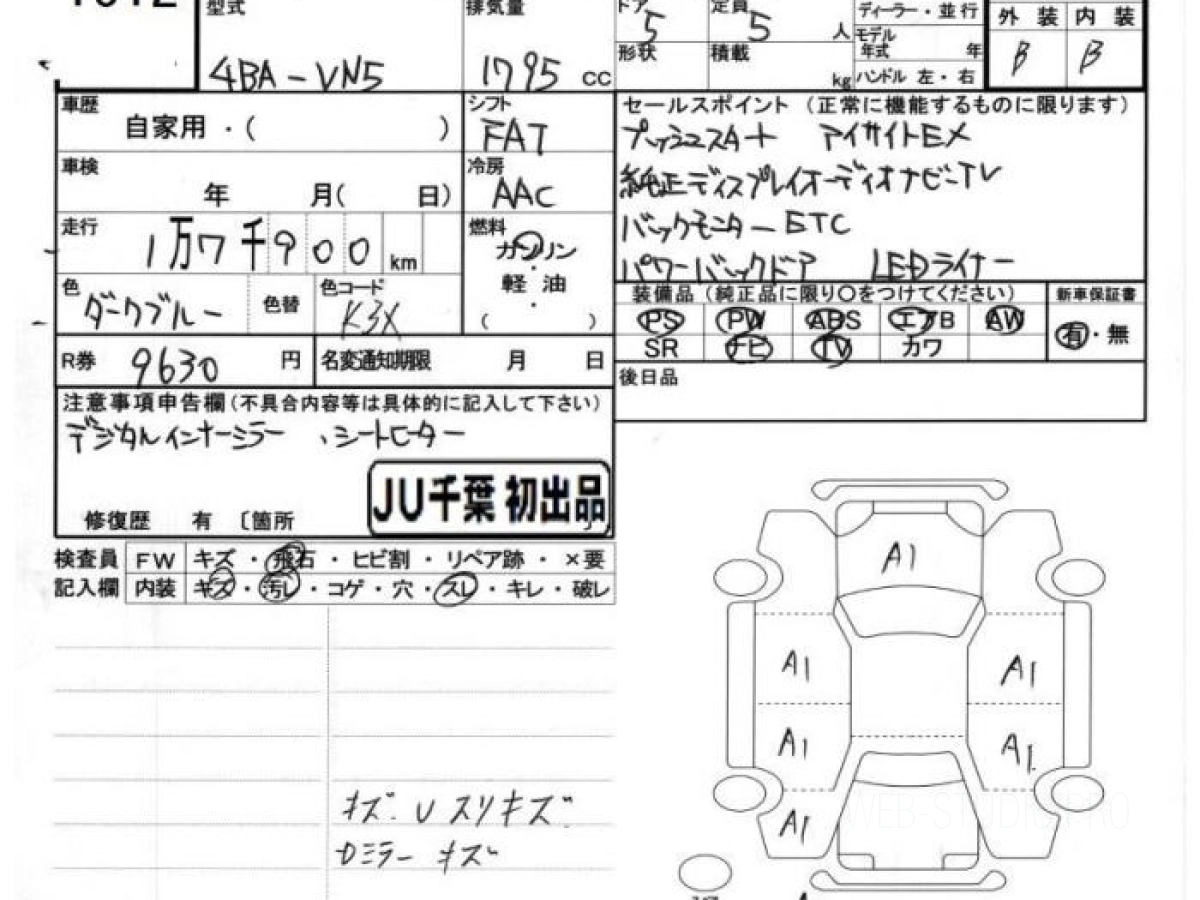 型式 排気量 ドア 定員 ディーラー・並行 外装 内装
5 5 人 モデル年式 年 B B
4BA-VN5 1795 cc 形状 積載 kg ハンドル 左・右
車歴 自家用・( ) シフト FAT
セールスポイント（正常に機能するものに限ります）
アイサイトEX
車検 年 月( 日) 冷房 AAC
純正ディスプレイオーディオナビTV
走行 1万7千900 km 燃料 ガソリン・軽油・( )
バックモニター ETC
パワーバックドア LEDライナー
色 ダークブルー 色替 色コード K3X
装備品（純正品に限り○をつけてください） 新車保証書
PS PW ABS エアB AW 有・無
SR ナビ TV カワ
R券 9630 円 名変通知期限 月 日
後日品
注意事項申告欄（不具合内容等は具体的に記入して下さい）
デジタルインナーミラー 、シートヒーター
JU千葉 初出品
修復歴 有 〔箇所 〕
検査員 FW キズ・飛石・ヒビ割・リペア跡・×要
記入欄 内装 キズ・汚レ・コゲ・穴・スレ・キレ・破レ
A1
A1 A1
A1 A1
A1
キズ. U スリキズ
Dミラー キズ
WEB-STUDIO.PRO